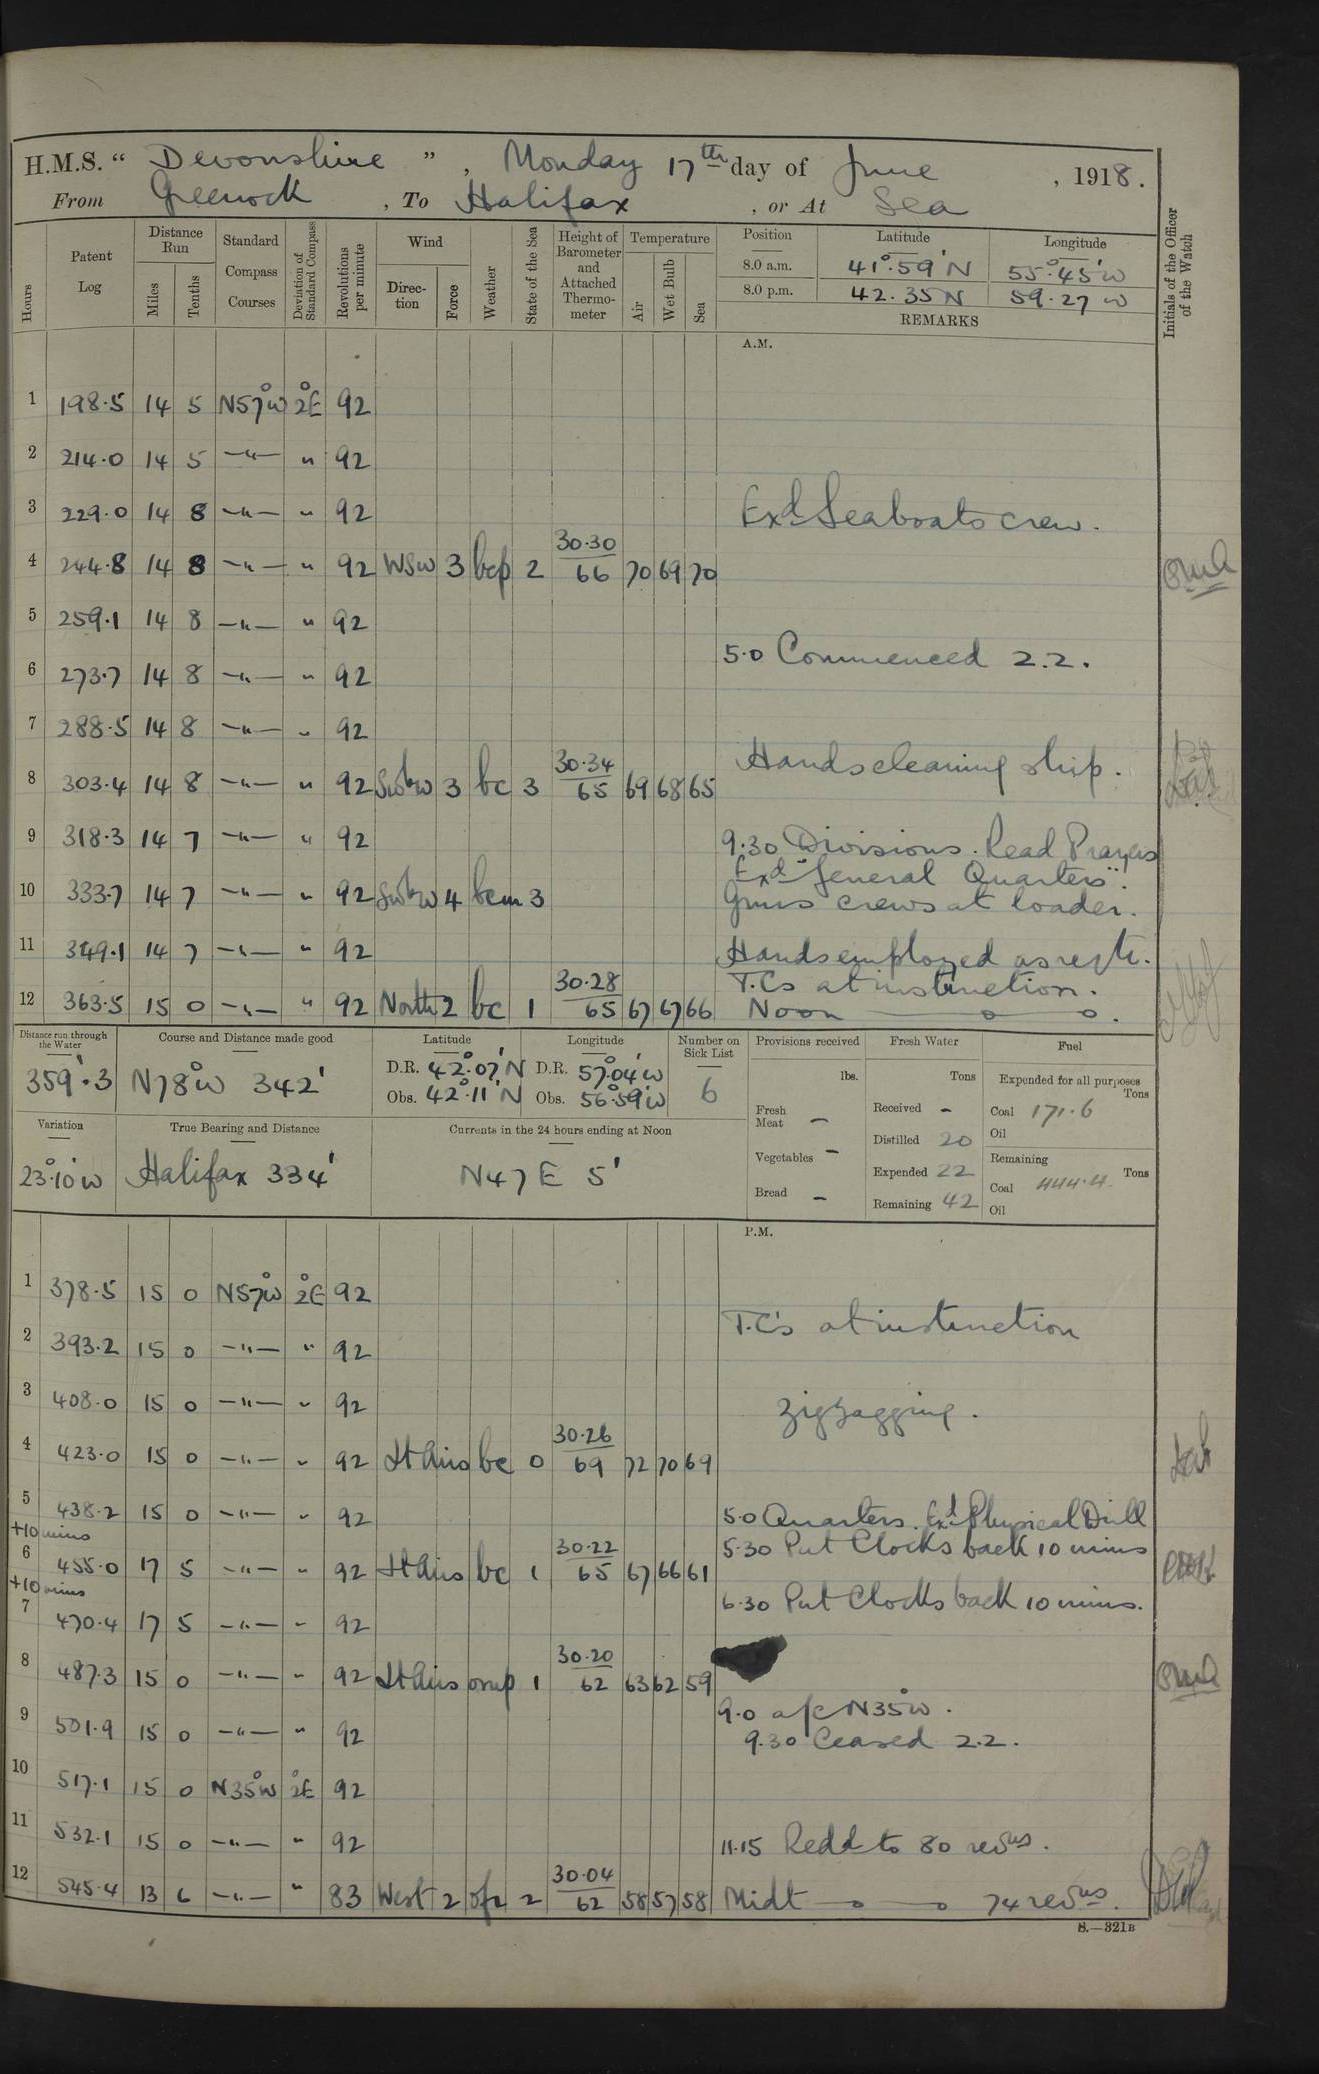 H.M.S. “ Devonshire ” , Monday 17th day of June , 1918.
From Greenock , To Halifax , or At Sea
Hours
Patent Log
Distance Run
Miles
Tenths
Standard Compass Courses
Deviation of Standard Compass
Revolutions per minute
Wind
Direction
Force
Weather
State of the Sea
Height of Barometer and Attached Thermometer
Temperature
Air
Wet Bulb
Sea
Position Latitude Longitude
8.0 a.m. 41°.59'N 55°.45'W
8.0 p.m. 42.35N 59.27 W
REMARKS
Initials of the Officer of the Watch
A.M.
1 198.5 14 5 N57°W 2°E 92
2 214.0 14 5 —"— " 92
3 229.0 14 8 —"— " 92 Exd Seaboats crew.
4 244.8 14 8 —"— " 92 WSW 3 bcp 2 30.30 66 70 69 70
5 259.1 14 8 —"— " 92
5.0 Commenced 2.2.
6 273.7 14 8 —"— " 92
7 288.5 14 8 —"— " 92
Hands cleaning ship.
8 303.4 14 8 —"— " 92 SWbW 3 bc 3 30.34 65 69 68 65
9 318.3 14 7 —"— " 92 9.30 Divisions. Read Prayers
Exd "General Quarters".
10 333.7 14 7 —"— " 92 SWbW 4 bcm 3 Guns crews at loader.
11 349.1 14 7 —"— " 92 Hands employed as reqte.
T.C's at instruction.
12 363.5 15 0 —"— " 92 North 2 bc 1 30.28 65 67 67 66 Noon — o — o.
Distance run through the Water
359'.3
Course and Distance made good
N78°W 342'
Latitude
D.R. 42°.07'N
Obs. 42°.11'N
Longitude
D.R. 57°.04'W
Obs. 56°.59'W
Number on Sick List
6
Variation
23°.10'W
True Bearing and Distance
Halifax 334'
Currents in the 24 hours ending at Noon
N47E 5'
Provisions received
lbs.
Fresh Meat —
Vegetables —
Bread —
Fresh Water
Tons
Received -
Distilled 20
Expended 22
Remaining 42
Fuel
Expended for all purposes
Tons
Coal 171.6
Oil
Remaining
Tons
Coal 444.4
Oil
P.M.
1 378.5 15 0 N57°W 2°E 92
T.C's at instruction
2 393.2 15 0 —"— " 92
3 408.0 15 0 —"— " 92 Zigzagging.
4 423.0 15 0 —"— " 92 Lt Airs bc 0 30.26 69 72 70 69
5 438.2 15 0 —"— " 92 5.0 Quarters. Exd Physical Drill
+10 mins
5.30 Put Clocks back 10 mins
6 455.0 17 5 —"— " 92 Lt Airs bc 1 30.22 65 67 66 61
+10 mins
6.30 Put Clocks back 10 mins.
7 470.4 17 5 —"— " 92
8 487.3 15 0 —"— " 92 Lt Airs omp 1 30.20 62 63 62 59
9.0 a/c N35°W.
9 501.9 15 0 —"— " 92 9.30 Ceased 2.2.
10 517.1 15 0 N35°W 2°E 92
11 532.1 15 0 —"— " 92 11.15 Redd to 80 revns.
12 545.4 13 6 —"— " 83 West 2 2 30.04 62 58 57 58 Midt — o — o 74 revns.
S.—321B